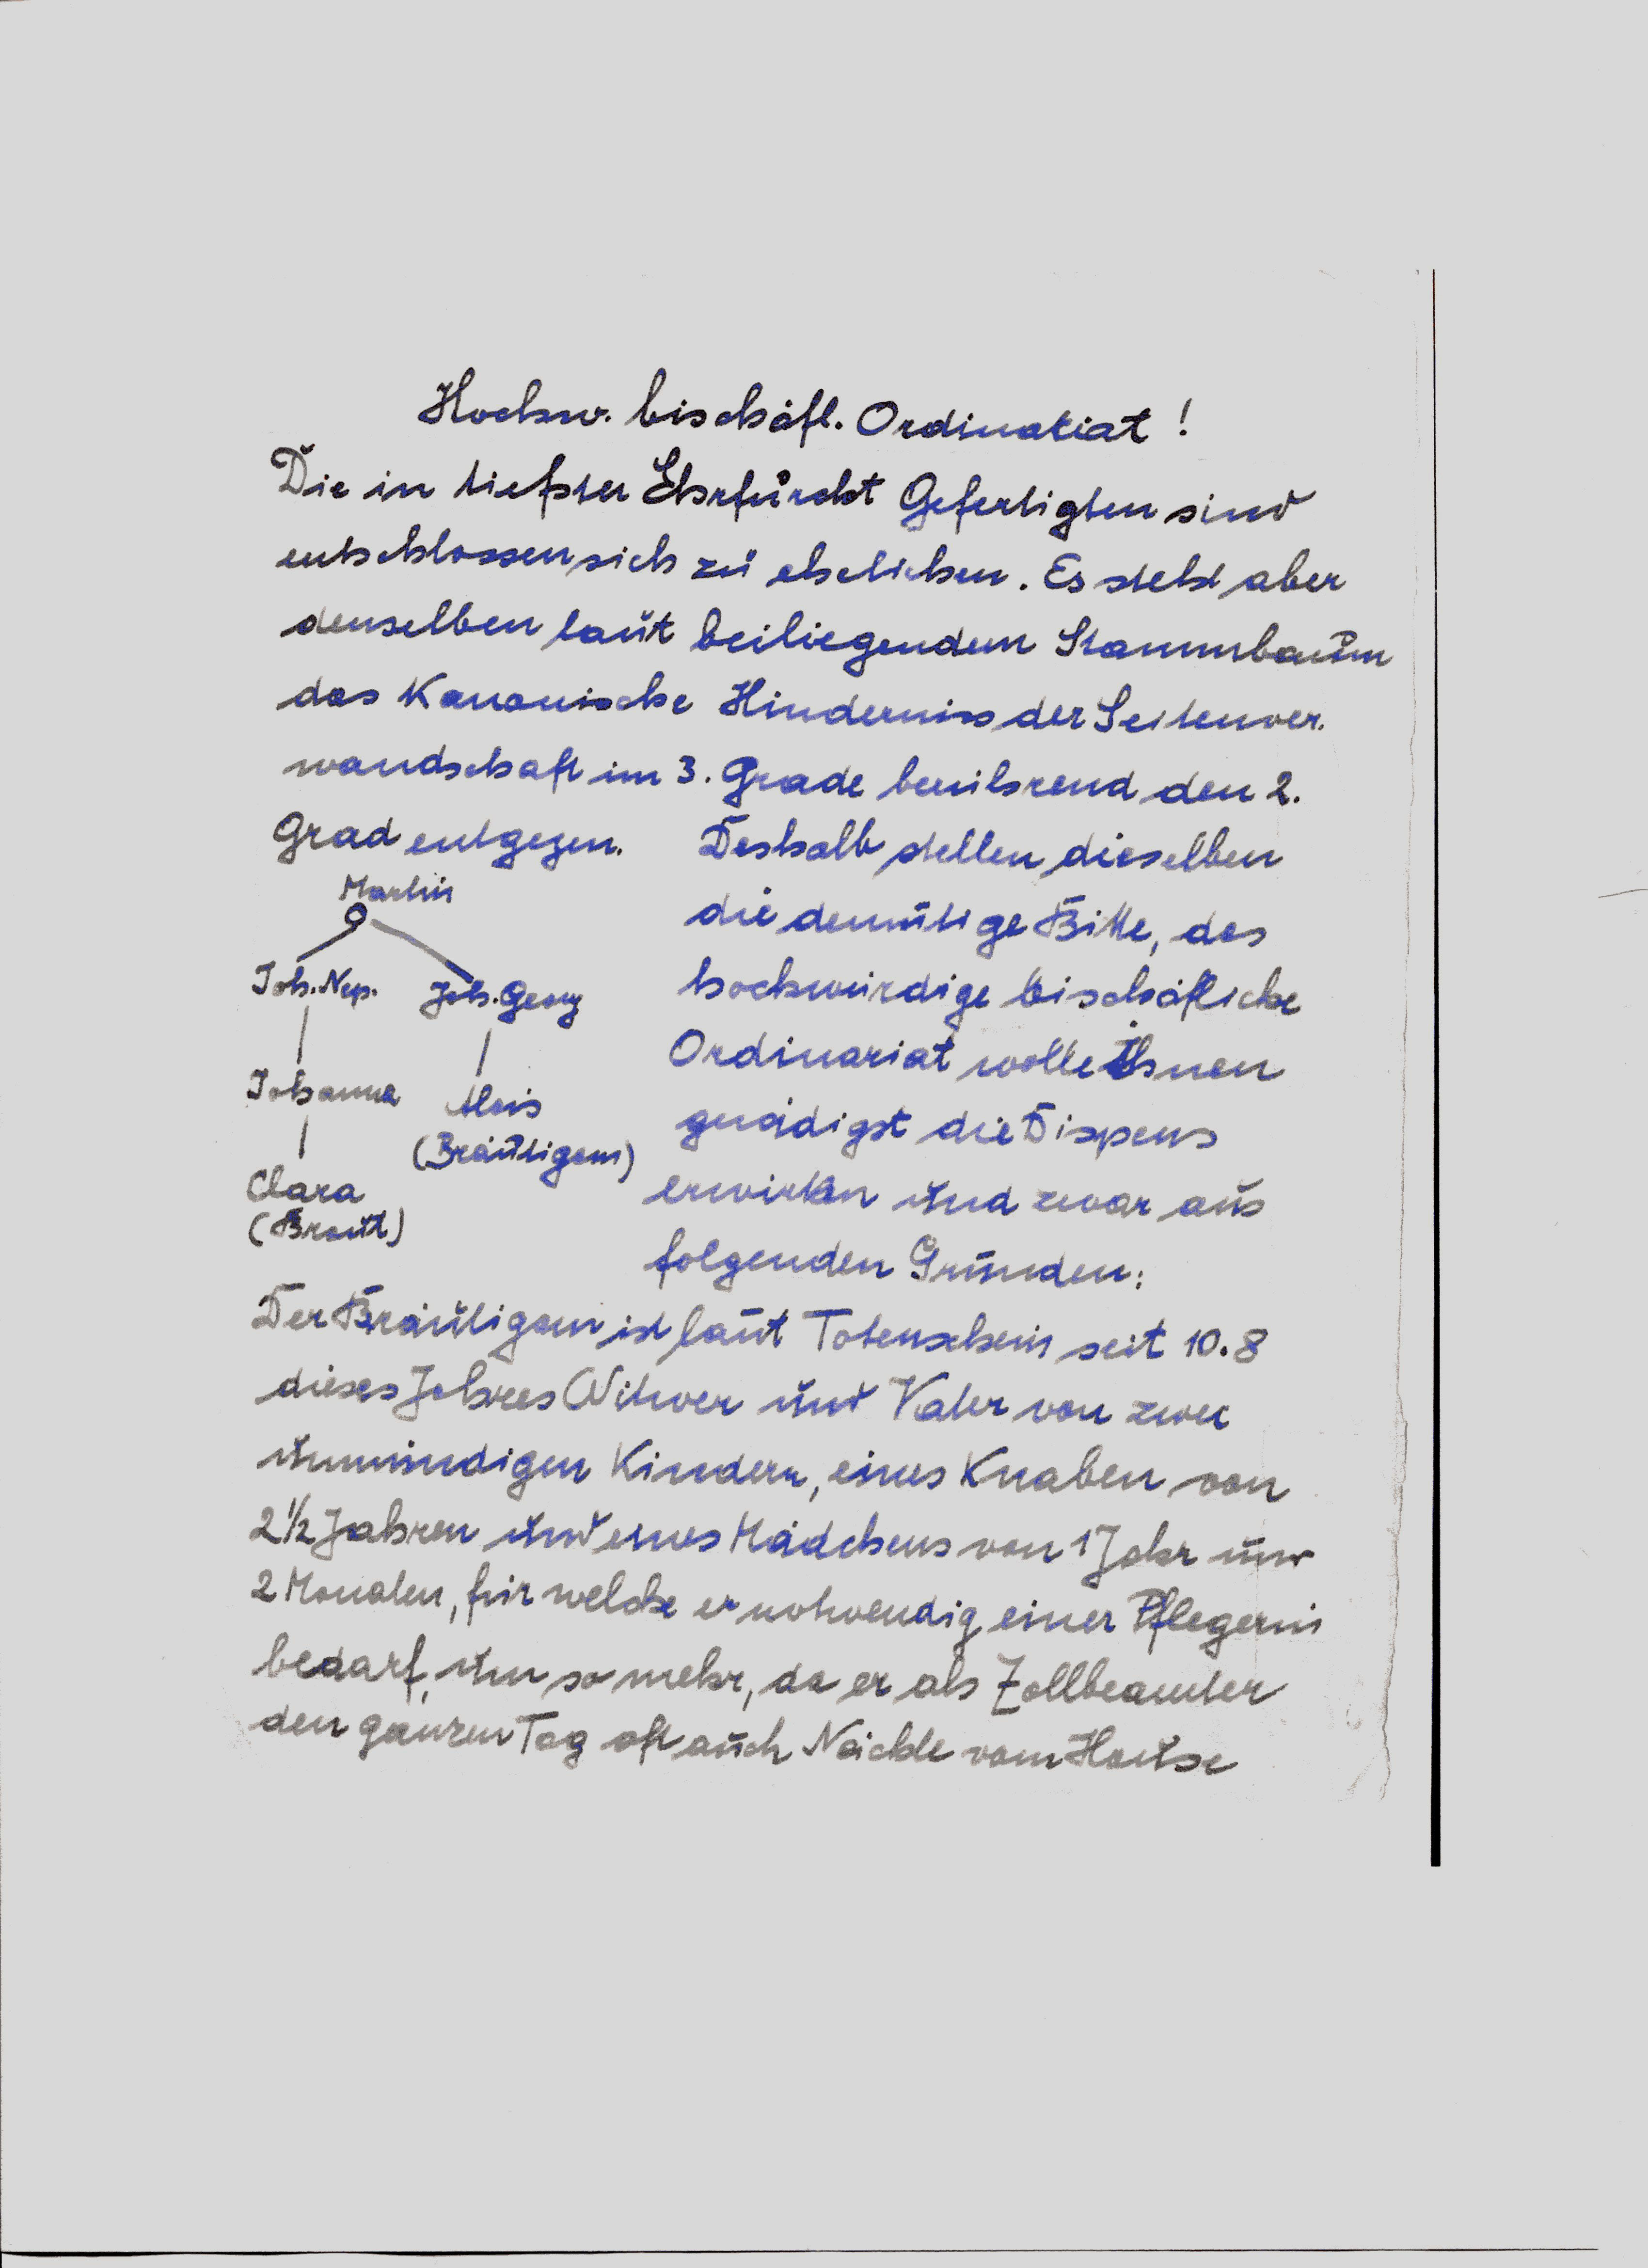 Hochw. bischöfl. Ordinariat!
Die in tiefster Ehrfurcht Gefertigten sind
entschlossen sich zu ehelichen. Es steht aber
denselben laut beiliegendem Stammbaum
das Kanonische Hinderniss der Seitenver.
wandschaft im 3. Grade berührend den 2.
Grad entgegen. Deshalb stellen dieselben
Martin
die demütige Bitte, das
Joh. Nep. Joh. Georg
hochwürdige bischöfliche
Ordinariat wolle Ihnen
Johanna Alois
gnädigst die Dispens
(Bräutigam)
Clara
erwirken und zwar aus
(Braut)
folgenden Gründen:
Der Bräutigam ist laut Totenschein seit 10.8
dieses Jahres Witwer und Vater von zwei
unmündigen Kindern, eines Knaben von
2½ Jahren und eines Mädchens von 1 Jahr und
2 Monaten, für welche er notwendig einer Pflegerin
bedarf, um so mehr, da er als Zollbeamter
den ganzen Tag oft auch Nächte vom Hause